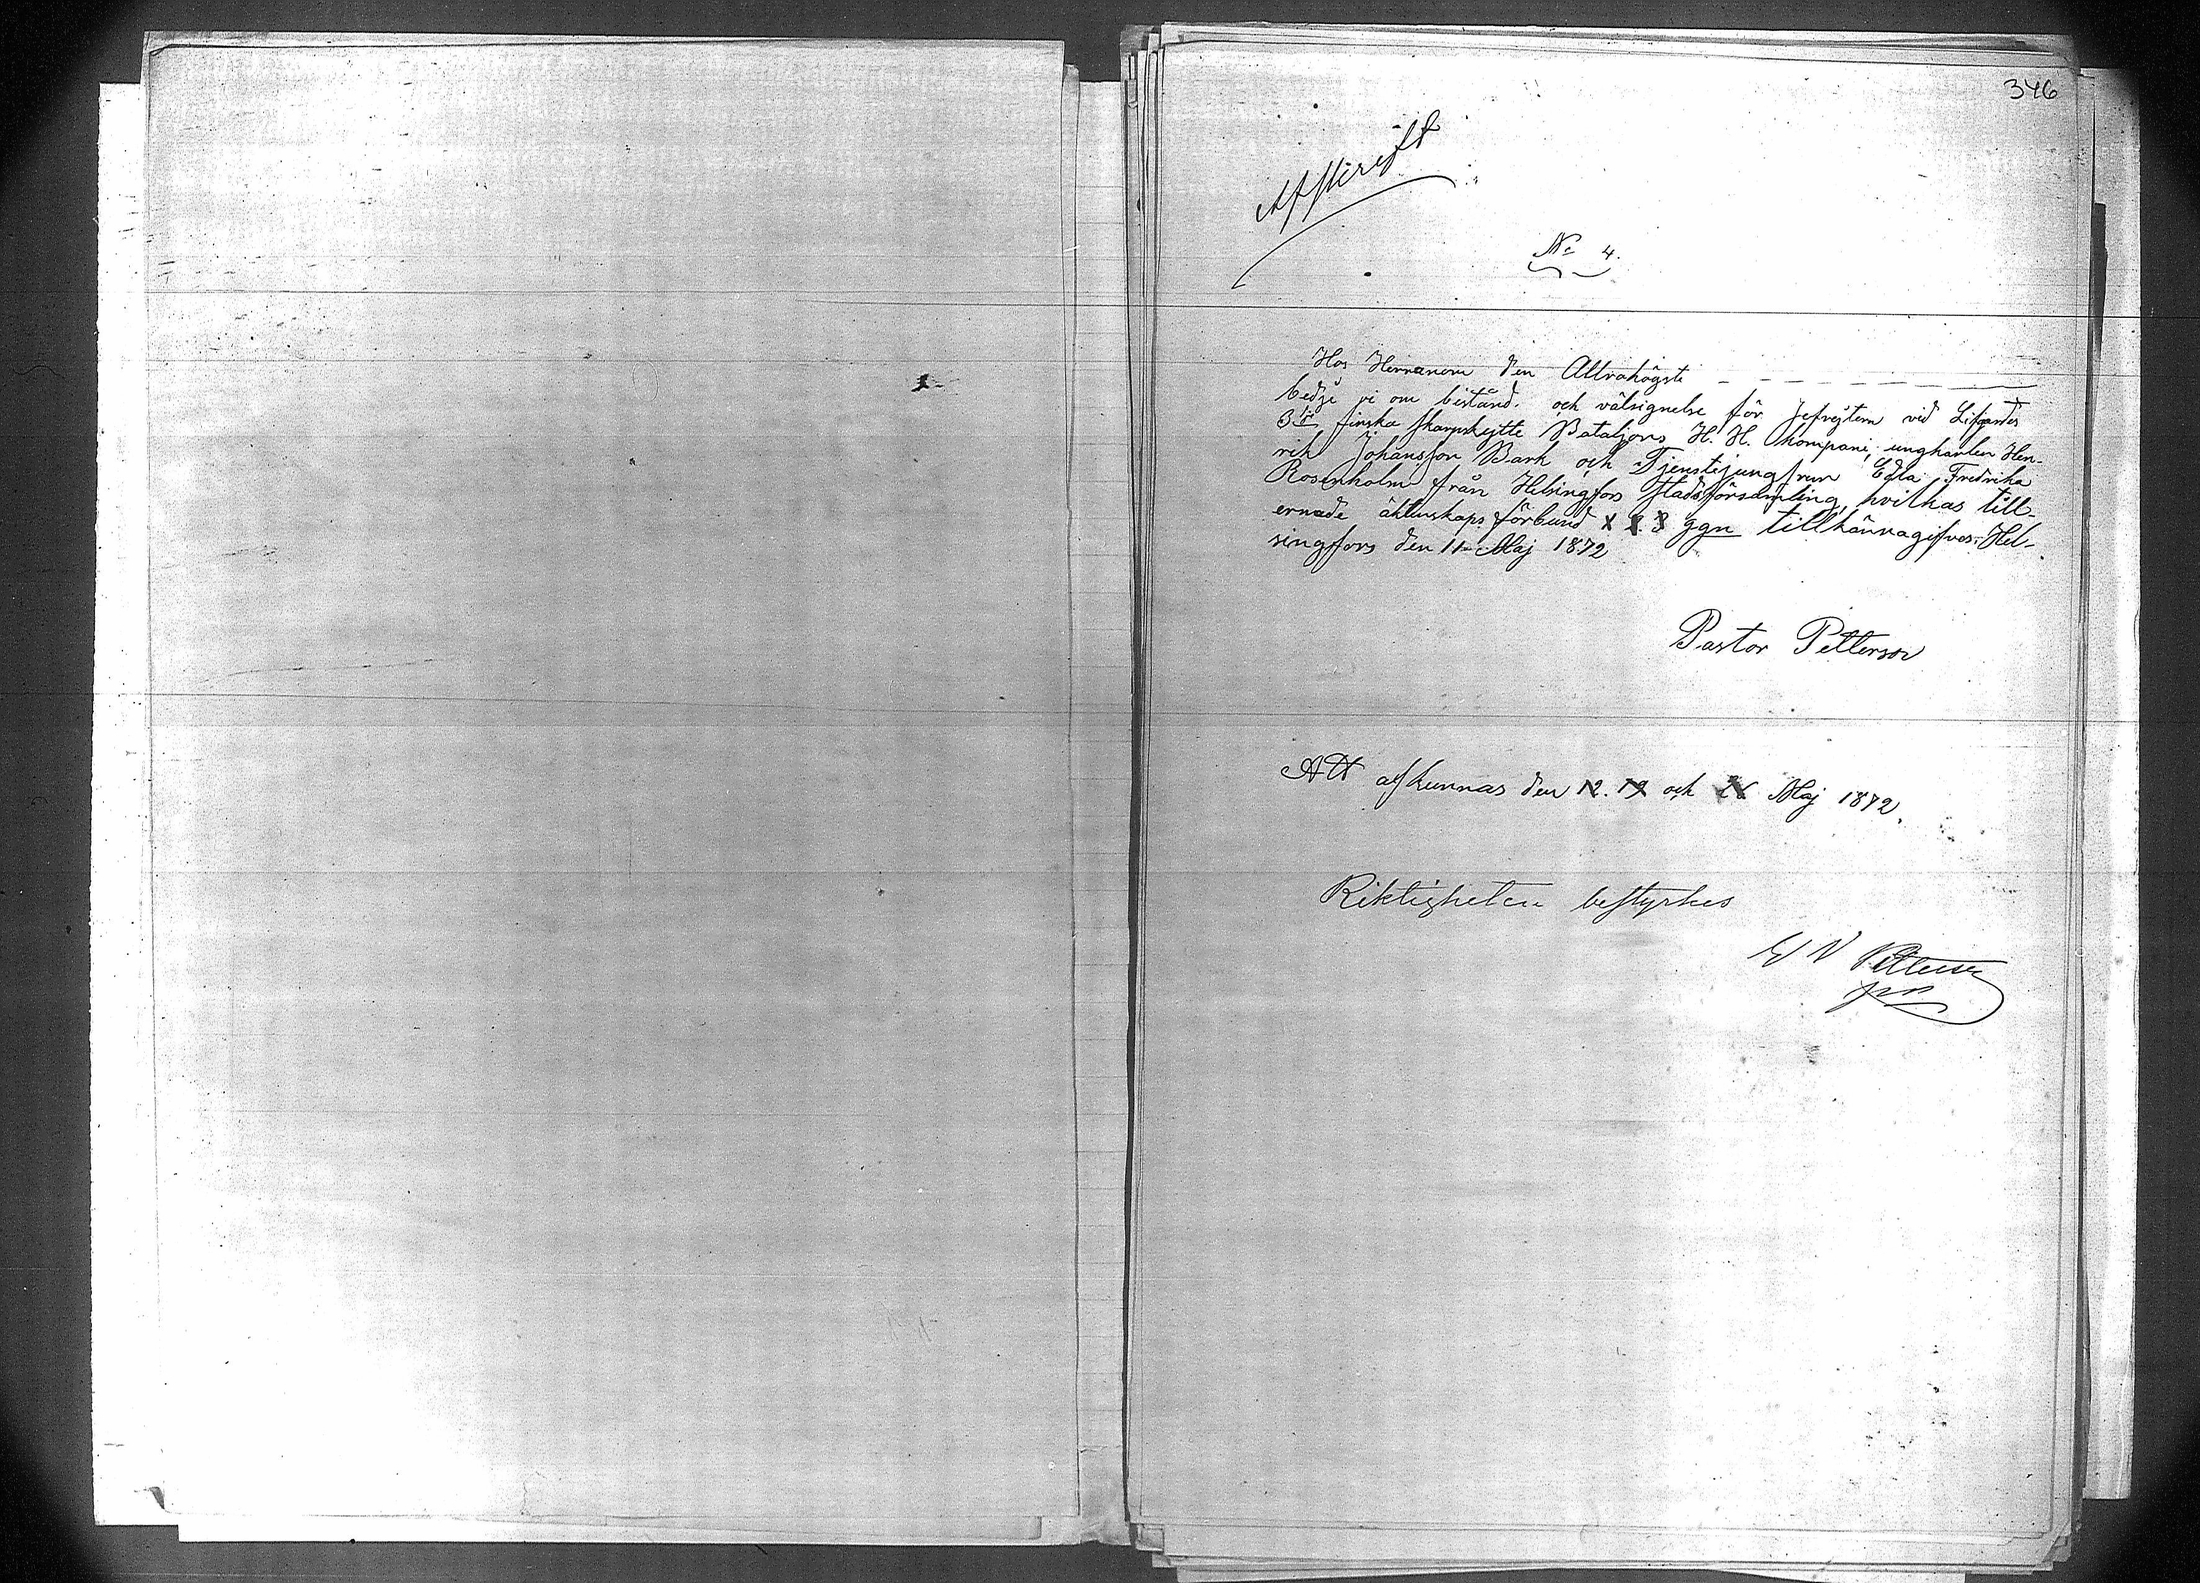 346
Afskrift
No 4.
Hos Herranom den Allrahögste
bedje vi om bistånd och välsignelse för Jefrejtern vid Lifgardes
3dje finska skarpskytte Bataljons H. H. kompani, ungkarlen Hen-
rik Johansson Bark och Tjenstejungfrun Edla Fredrika
Rosenholm från Helsingfors stadsförsamling, hvilkas till-
ernade äktenskaps förbund ggn tillkännagifves. Hel-
singfors den 11 Maj 1872
Pastor Petterson
Att afkunnas den 12. 19 och 26 Maj 1872.
Riktigheten bestyrkes
Pettersson